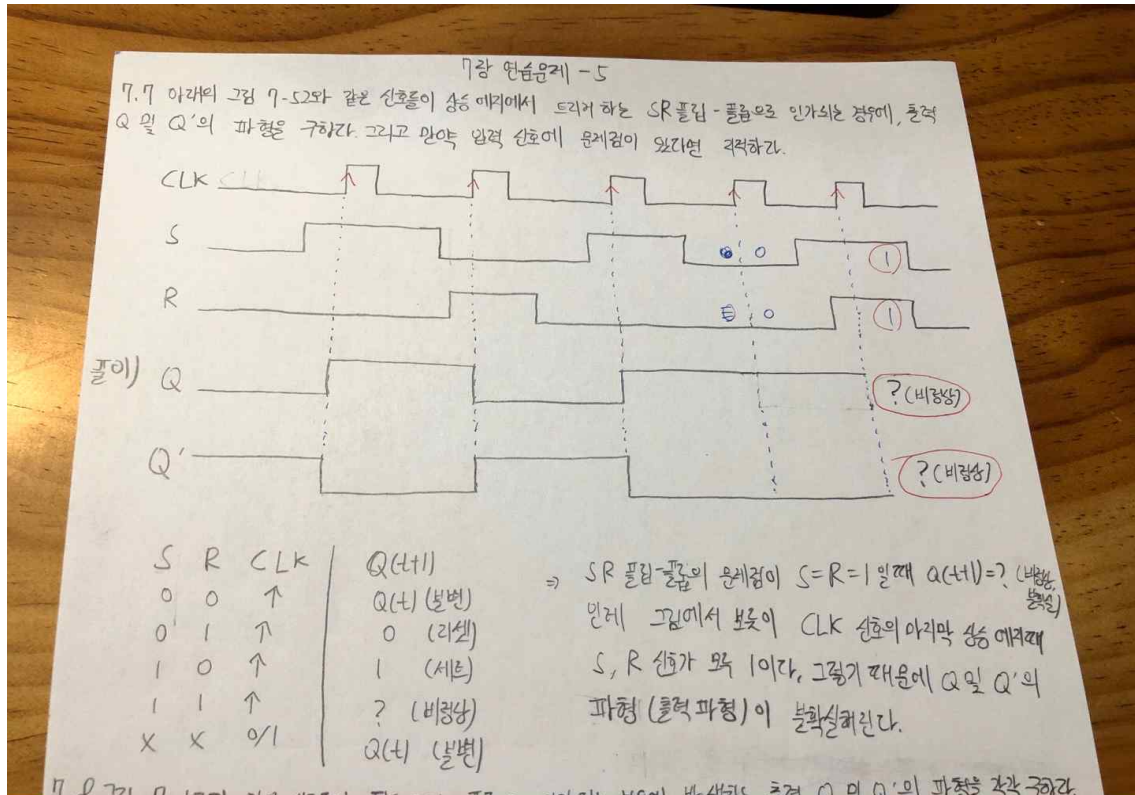 7장 연습문제 - 5
7.7 아래의 그림 7-52와 같은 신호들이 상승 에지에서 트리거 하는 SR 플립-플롭으로 인가되는 경우에, 출력
Q 및 Q'의 파형을 구하라. 그리고 만약 입력 신호에 문제점이 있다면 지적하라.
CLK
S 0 1
R 0 1
풀이) Q ? (비정상)
Q' ? (비정상)
S R CLK Q(t+1)
0 0 ↑ Q(t) (불변)
0 1 ↑ 0 (리셋)
1 0 ↑ 1 (세트)
1 1 ↑ ? (비정상)
X X 0/1 Q(t) (불변)
⇒ SR 플립-플롭의 문제점이 S=R=1 일때 Q(t+1)=? (비정상, 불확실)
인데 그림에서 보듯이 CLK 신호의 마지막 상승 에지때
S, R 신호가 모두 1이다, 그렇기 때문에 Q 및 Q'의
파형 (출력 파형) 이 불확실해진다.
출력 Q 및 Q'의 파형을 각각 구하라.